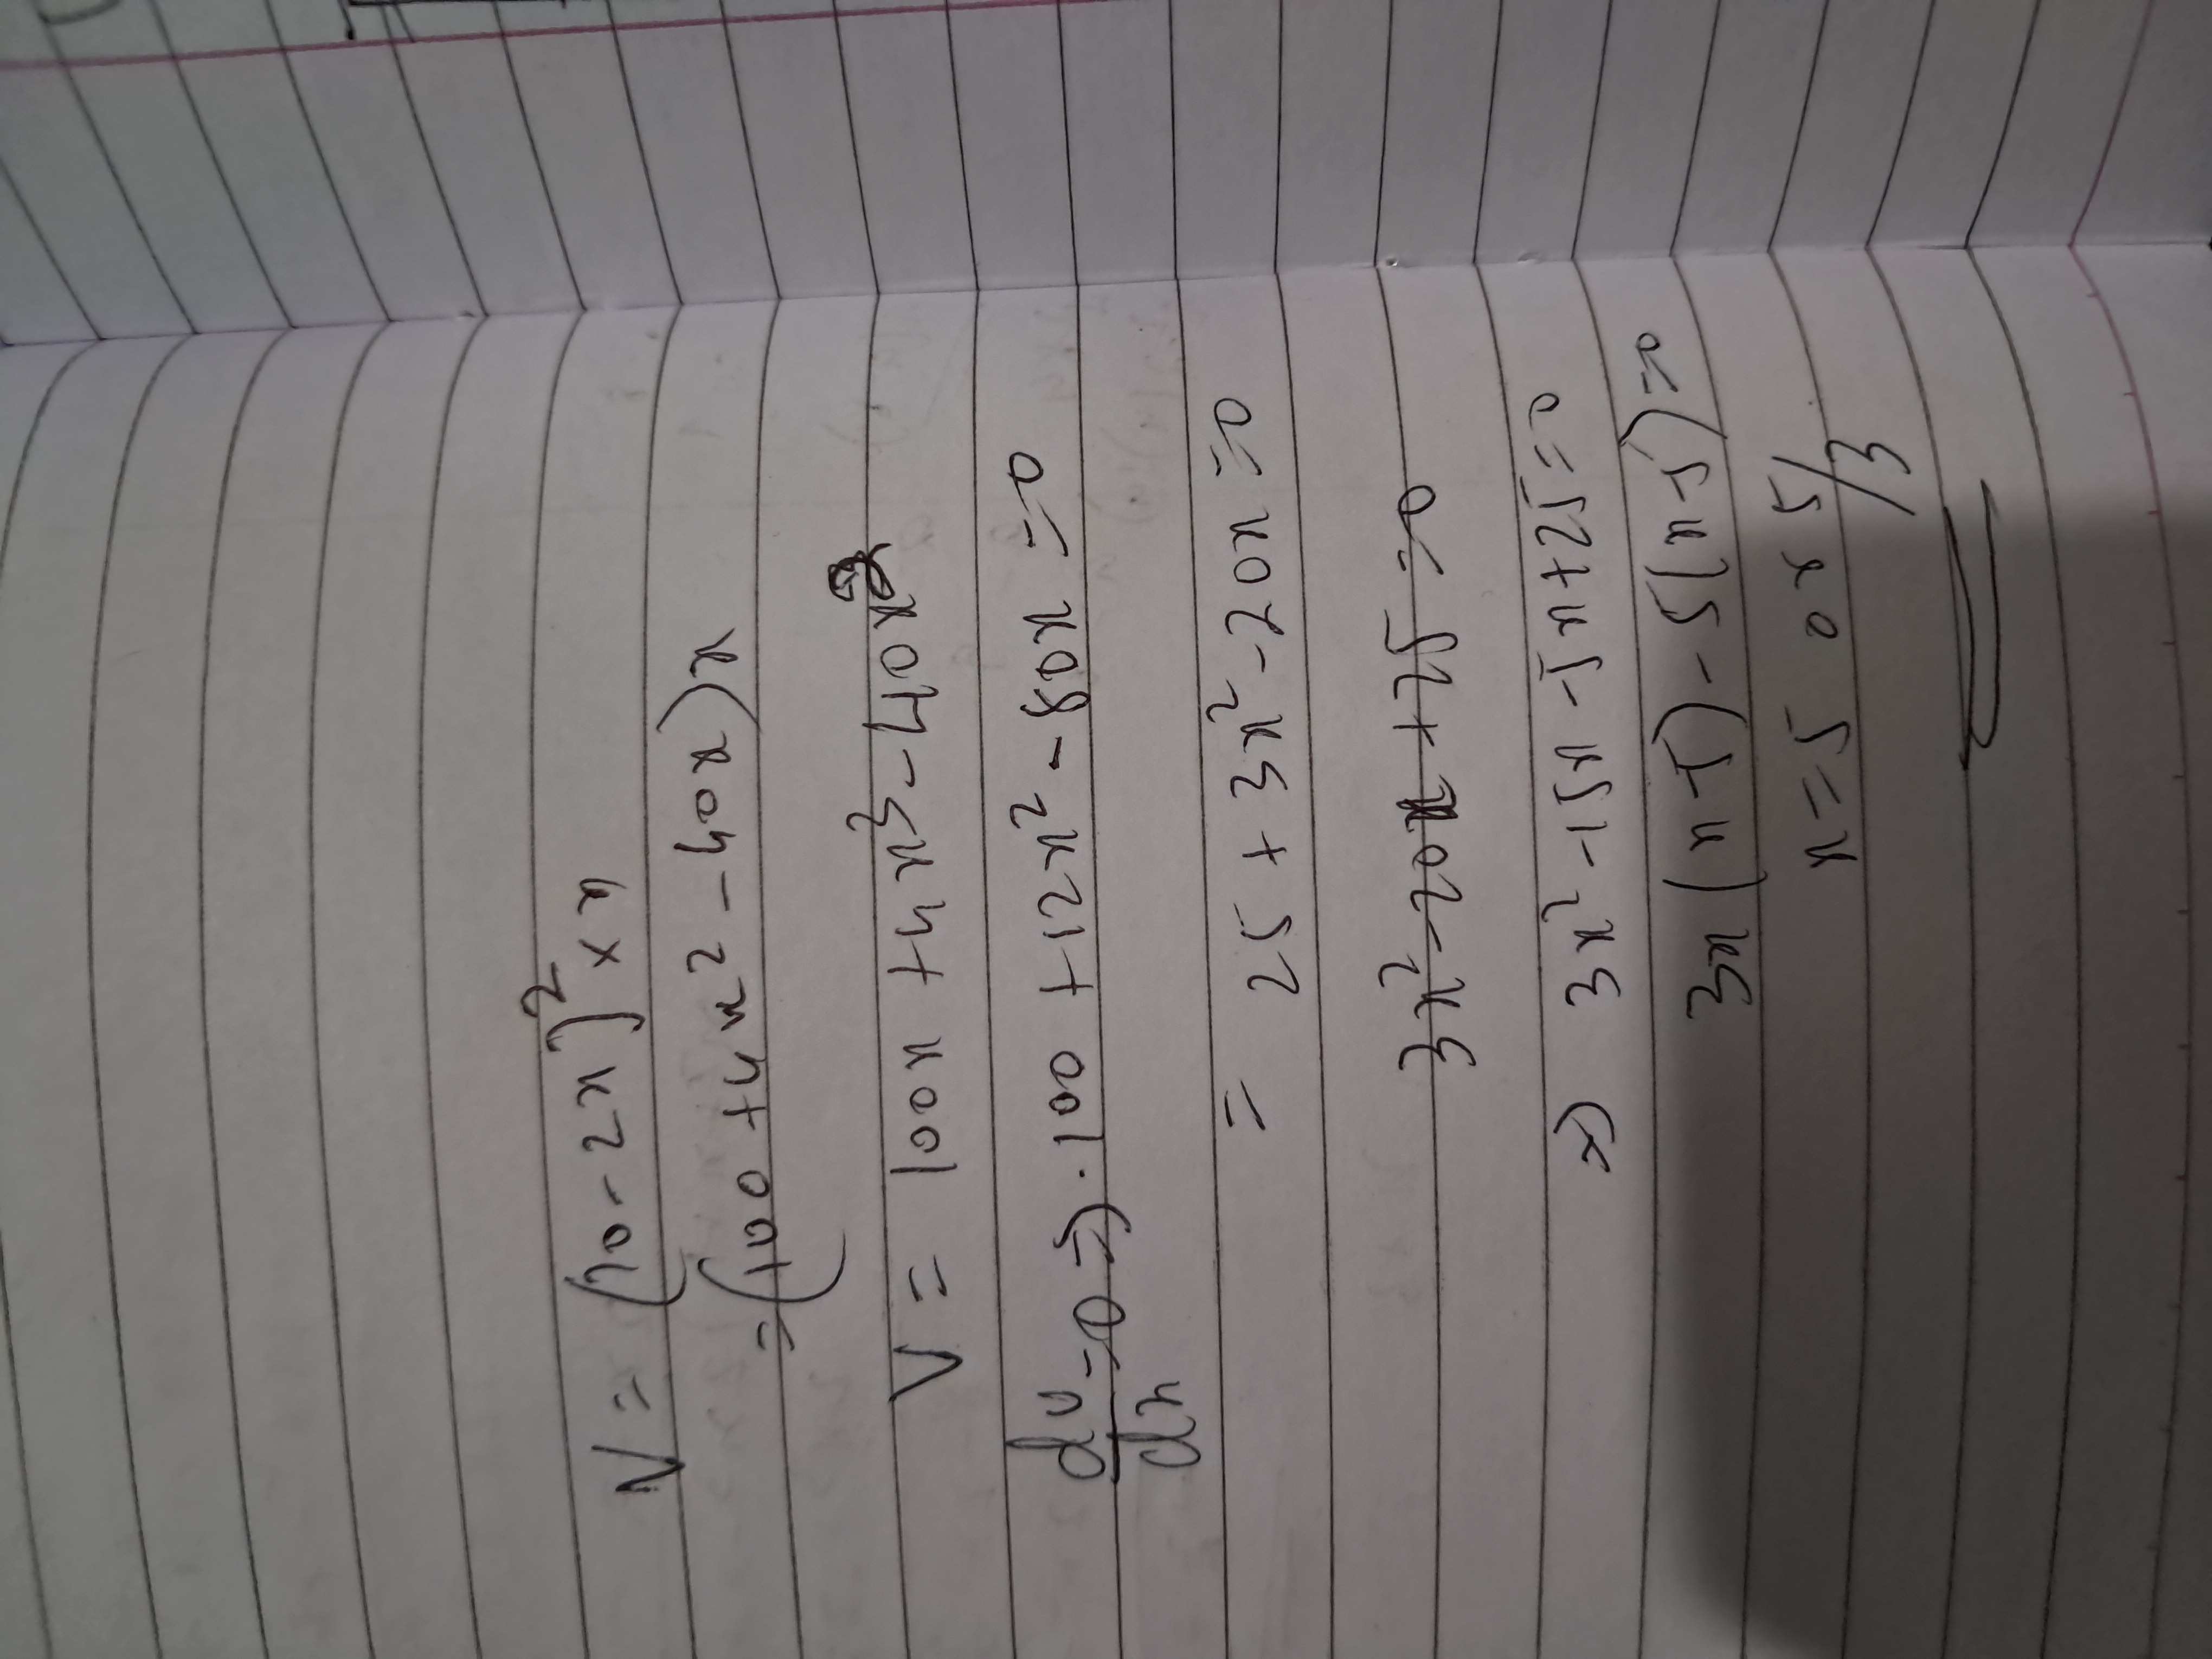 V = (10 - 2x)² × x
= (100 + 4x² - 40x) x
V = 100x + 4x³ - 40x²
dv/dx = 0 ⇒ 100 + 12x² - 80x = 0
= 25 + 3x² - 20x = 0
3x² - 20x + 25 = 0
⇒ 3x² - 15x - 5x + 25 = 0
3x (x - 5) - 5(x - 5) = 0
x = 5 or 5/3